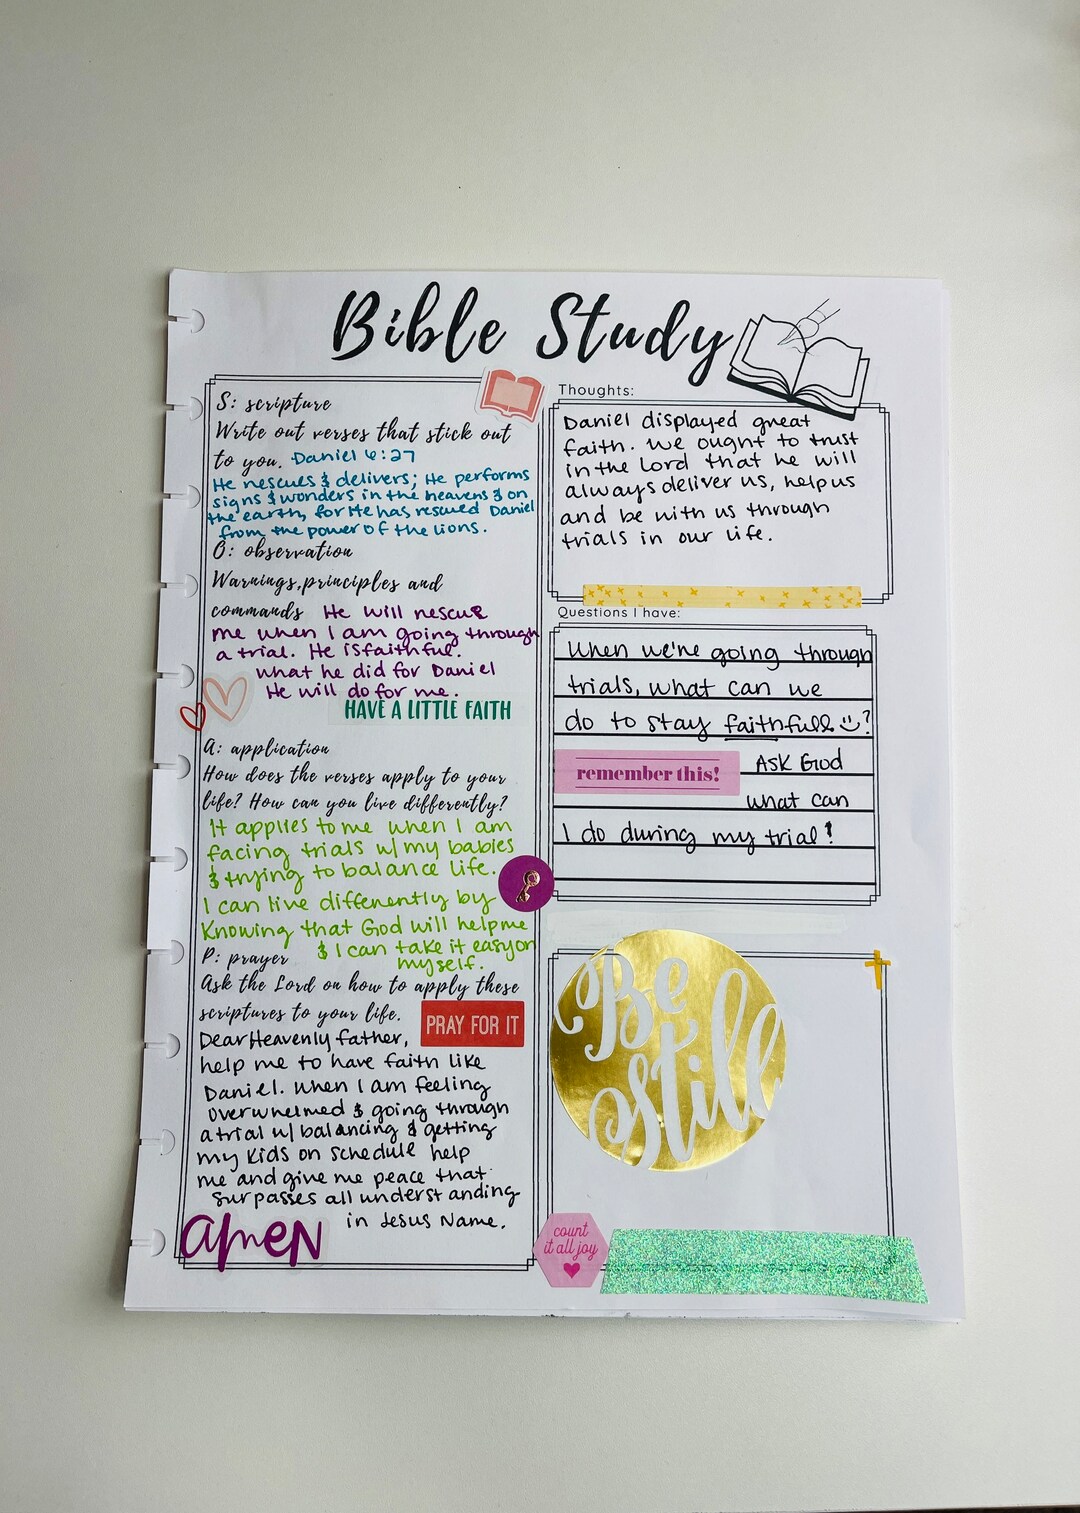 Bible Study
S: scripture
Write out verses that stick out
to you. Daniel 6:27
He rescues & delivers; He performs
signs & wonders in the heavens & on
the earth, for He has rescued Daniel
from the power of the lions.
O: observation
Warnings, principles and
commands He will rescue
me when I am going through
a trial. He is faithful.
what he did for Daniel
He will do for me.
HAVE A LITTLE FAITH
A: application
How does the verses apply to your
life? How can you live differently?
It applies to me when I am
facing trials w/ my babies
& trying to balance life.
I can live differently by
Knowing that God will help me
& I can take it easy on
myself.
P: prayer
Ask the Lord on how to apply these
scriptures to your life.
PRAY FOR IT
Dear Heavenly father,
help me to have faith like
Daniel. When I am feeling
overwhelmed & going through
a trial w/ balancing & getting
my kids on schedule help
me and give me peace that
surpasses all understanding
in Jesus Name.
amen
Thoughts:
Daniel displayed great
faith. We ought to trust
in the Lord that he will
always deliver us, help us
and be with us through
trials in our life.
Questions I have:
When we're going through
trials, what can we
do to stay faithfull?
remember this!
Ask God
what can
I do during my trial?
Be
Still
count
it all joy